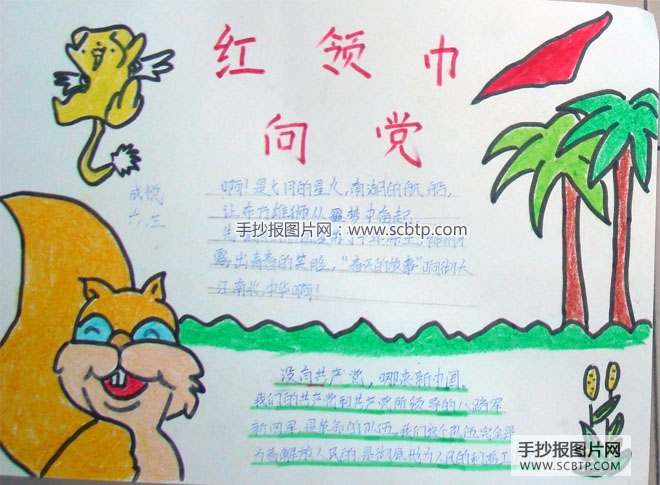 红领巾
向党
成悦
六.三
啊！是七月的星火，南湖的航船，
让东方雄师从噩梦中奋起，
手抄报图片网：www.scbtp.com
露出青春的笑脸，“春天的故事”响彻大
江南北，中华啊！
没有共产党，哪来新中国，
我们的共产党和共产党所领导的八路军
新四军，是革命的队伍。我们这个队伍完全是
为着解放人民的，是彻底地为人民的利益工
手抄报图片网
WWW.SCBTP.COM